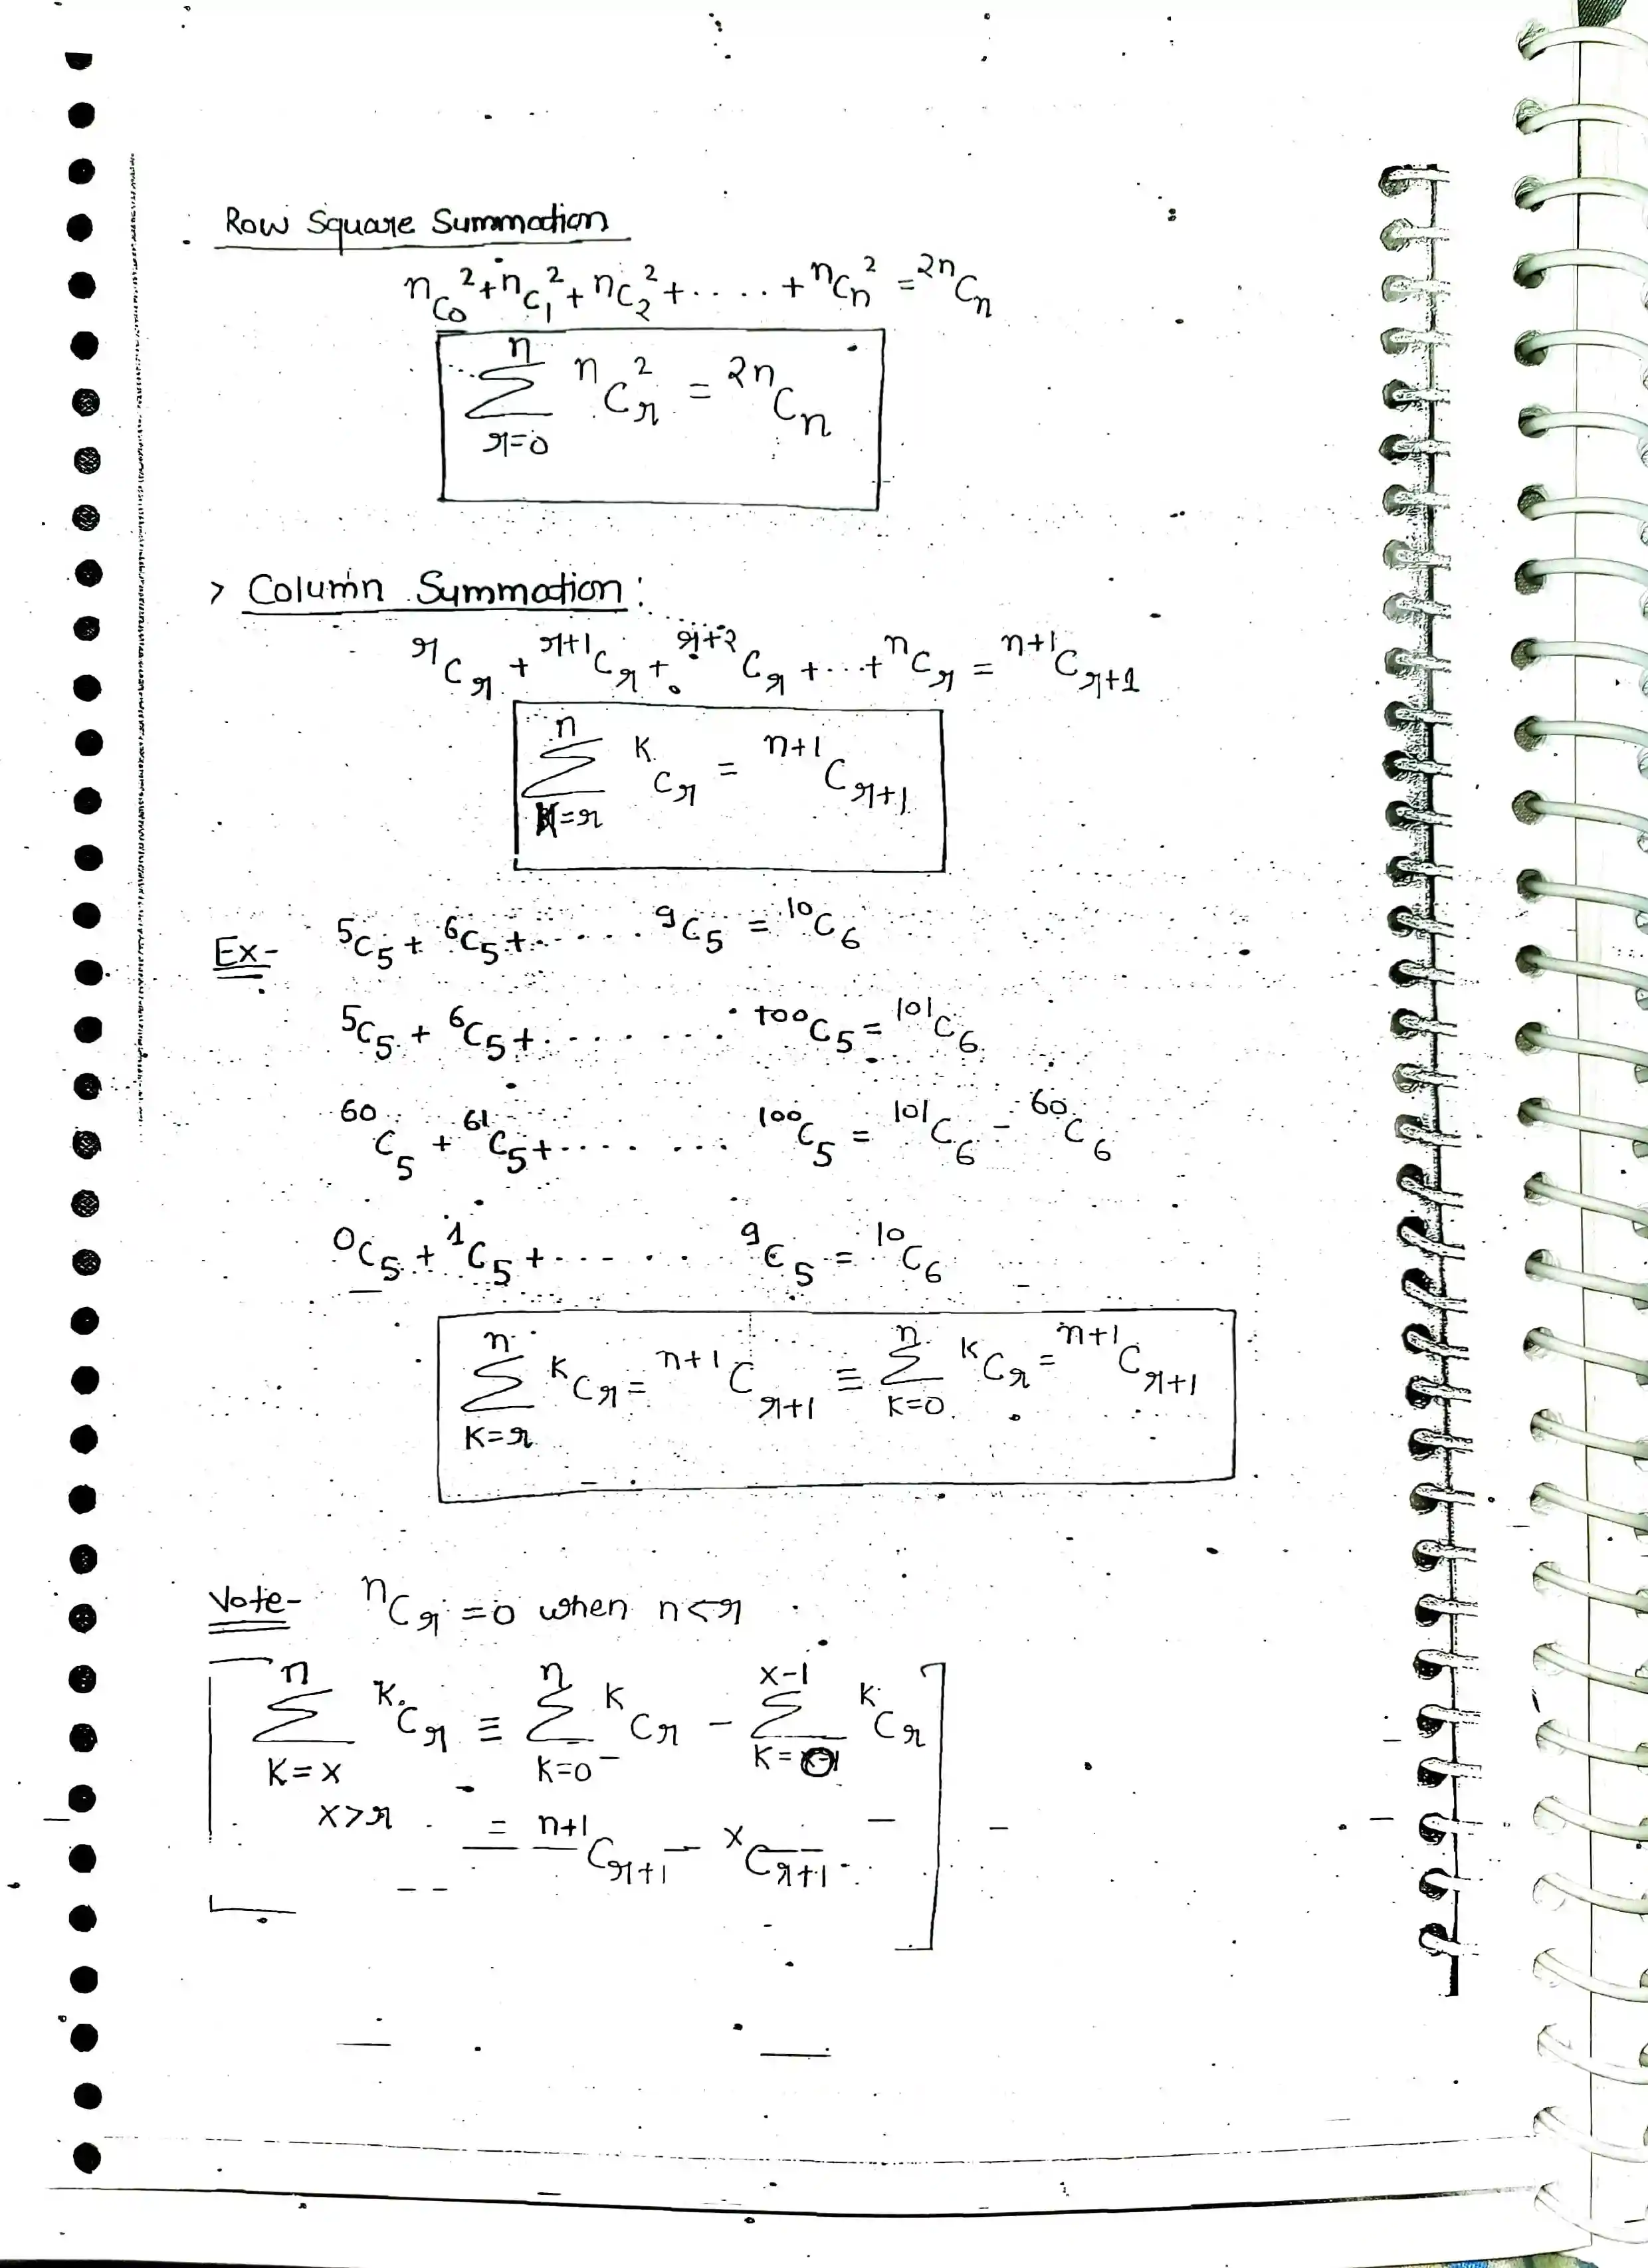 Row Square Summation
ⁿC₀² + ⁿC₁² + ⁿC₂² + ..... + ⁿCₙ² = ²ⁿCₙ
\sum_{r=0}^{n} ⁿCᵣ² = ²ⁿCₙ
> Column Summation:
^{r}C_{r} + ^{r+1}C_{r} + ^{r+2}C_{r} + ... + ^{n}C_{r} = ^{n+1}C_{r+1}
\sum_{k=r}^{n} ^{k}C_{r} = ^{n+1}C_{r+1}
Ex- ⁵C₅ + ⁶C₅ + ...... ⁹C₅ = ¹⁰C₆
⁵C₅ + ⁶C₅ + ....... ¹⁰⁰C₅ = ¹⁰¹C₆
⁶⁰C₅ + ⁶¹C₅ + ....... ¹⁰⁰C₅ = ¹⁰¹C₆ - ⁶⁰C₆
⁰C₅ + ¹C₅ + ...... ⁹C₅ = ¹⁰C₆
\sum_{K=r}^{n} ^{K}C_{r} = ^{n+1}C_{r+1} ≡ \sum_{K=0}^{n} ^{K}C_{r} = ^{n+1}C_{r+1}
Note- ⁿCᵣ = 0 when n<r
\sum_{K=x}^{n} ^{K}C_{r} ≡ \sum_{K=0}^{n} ^{K}C_{r} - \sum_{K=0}^{x-1} ^{K}C_{r}
x>r = ^{n+1}C_{r+1} - ^{x}C_{r+1}